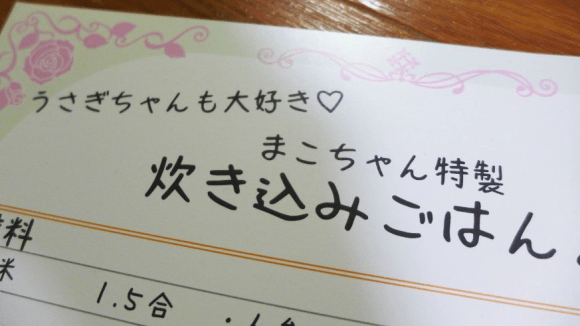 うさぎちゃんも大好き♡
まこちゃん特製
炊き込みごはん
材料
米 1.5合